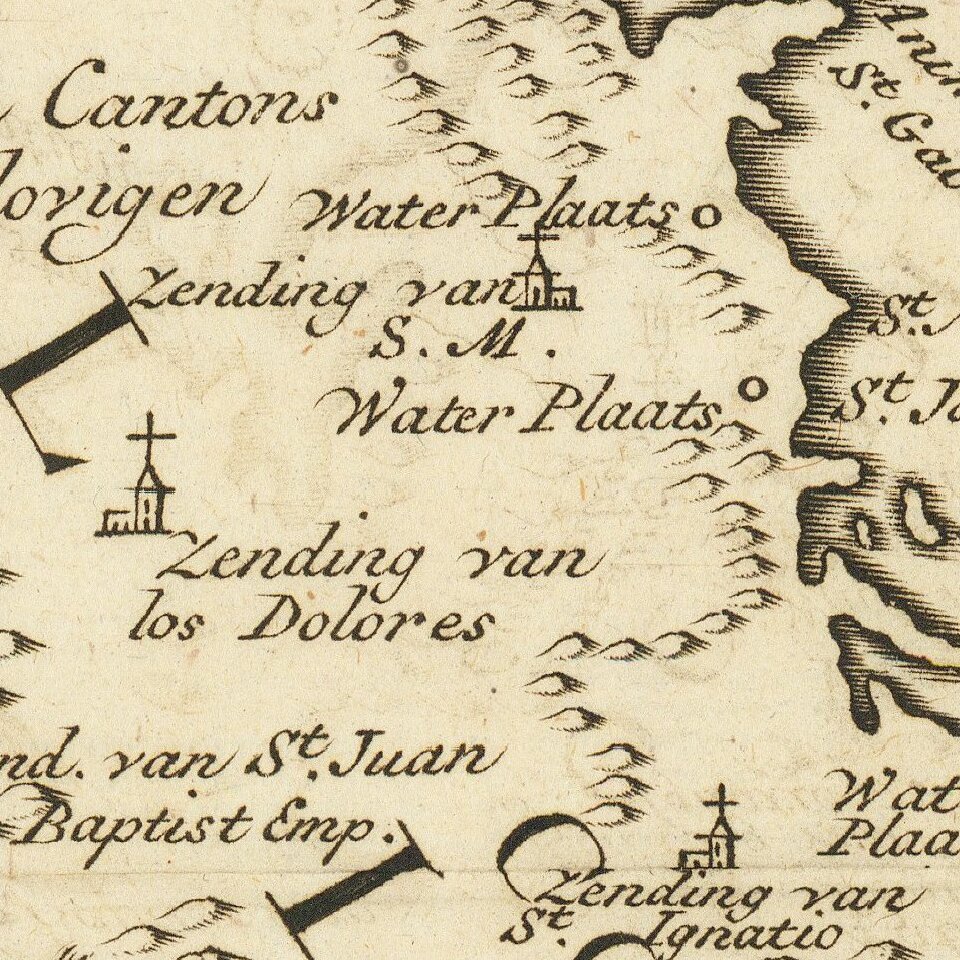 Cantons
lovigen
Water Plaats
Zending van
S. M.
Water Plaats
Zending van
los Dolores
nd. van St. Juan
Baptist Emp.
Zending van
St. Ignatio
Wat
Plaa
St.
St. Ja
St. Gab
I
I
C